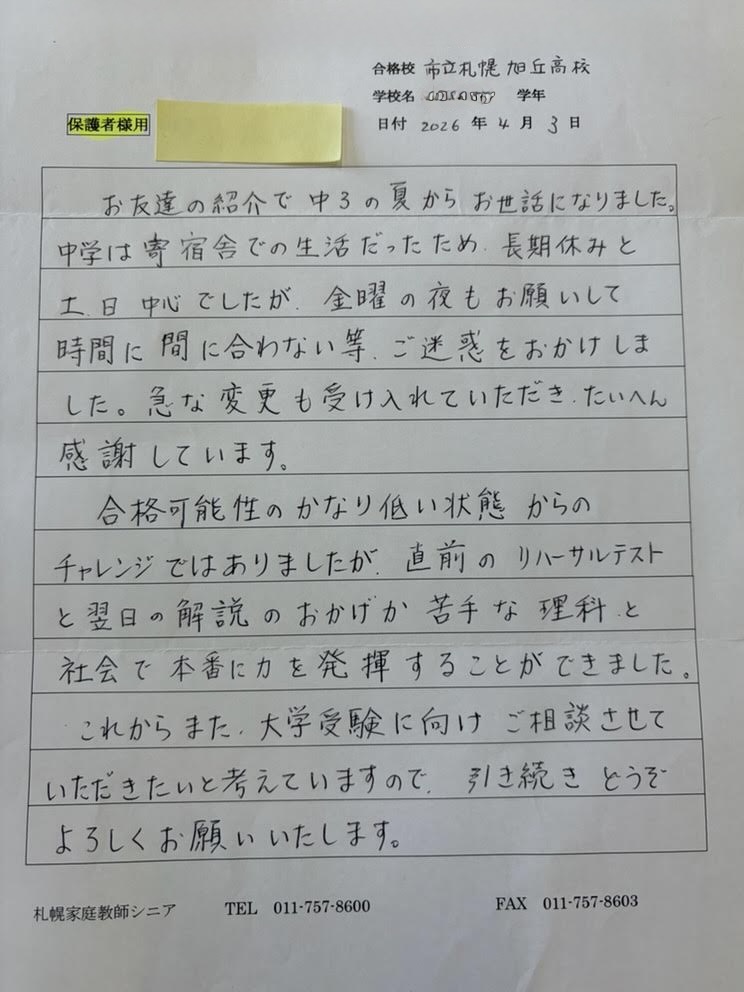 合格校 市立札幌旭丘高校
学校名 学年
保護者様用
日付 2026 年 4 月 3 日
お友達の紹介で中3の夏からお世話になりました。
中学は寄宿舎での生活だったため、長期休みと
土、日中心でしたが、金曜の夜もお願いして
時間に間に合わない等、ご迷惑をおかけしま
した。急な変更も受け入れていただき、たいへん
感謝しています。
合格可能性のかなり低い状態からの
チャレンジではありましたが、直前のリハーサルテスト
と翌日の解説のおかげか苦手な理科と
社会で本番に力を発揮することができました。
これからまた、大学受験に向けご相談させて
いただきたいと考えていますので、引き続きどうぞ
よろしくお願いいたします。
札幌家庭教師シニア TEL 011-757-8600 FAX 011-757-8603